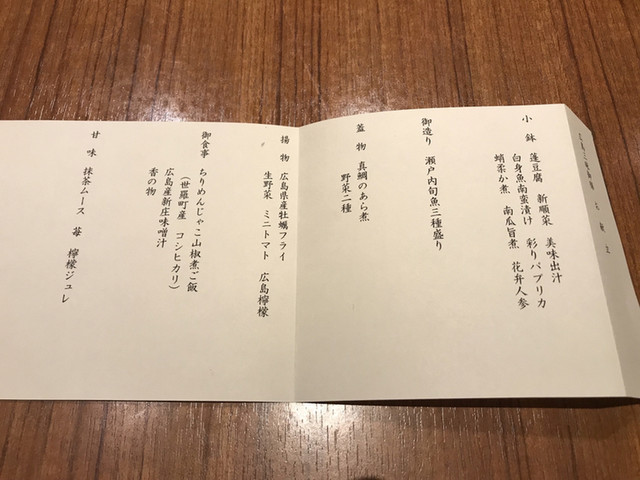 小鉢 蓮豆腐 新順菜 美味出汁
白身魚南蛮漬け 彩りパプリカ
蛸柔か煮 南瓜旨煮 花弁人参
御造り 瀬戸内旬魚三種盛り
蓋物 真鯛のあら煮
野菜二種
揚物 広島県産牡蠣フライ
生野菜 ミニトマト 広島檸檬
御食事 ちりめんじゃこ山椒煮ご飯
(世羅町産 コシヒカリ)
広島産新庄味噌汁
香の物
甘味 抹茶ムース 苺 檸檬ジュレ